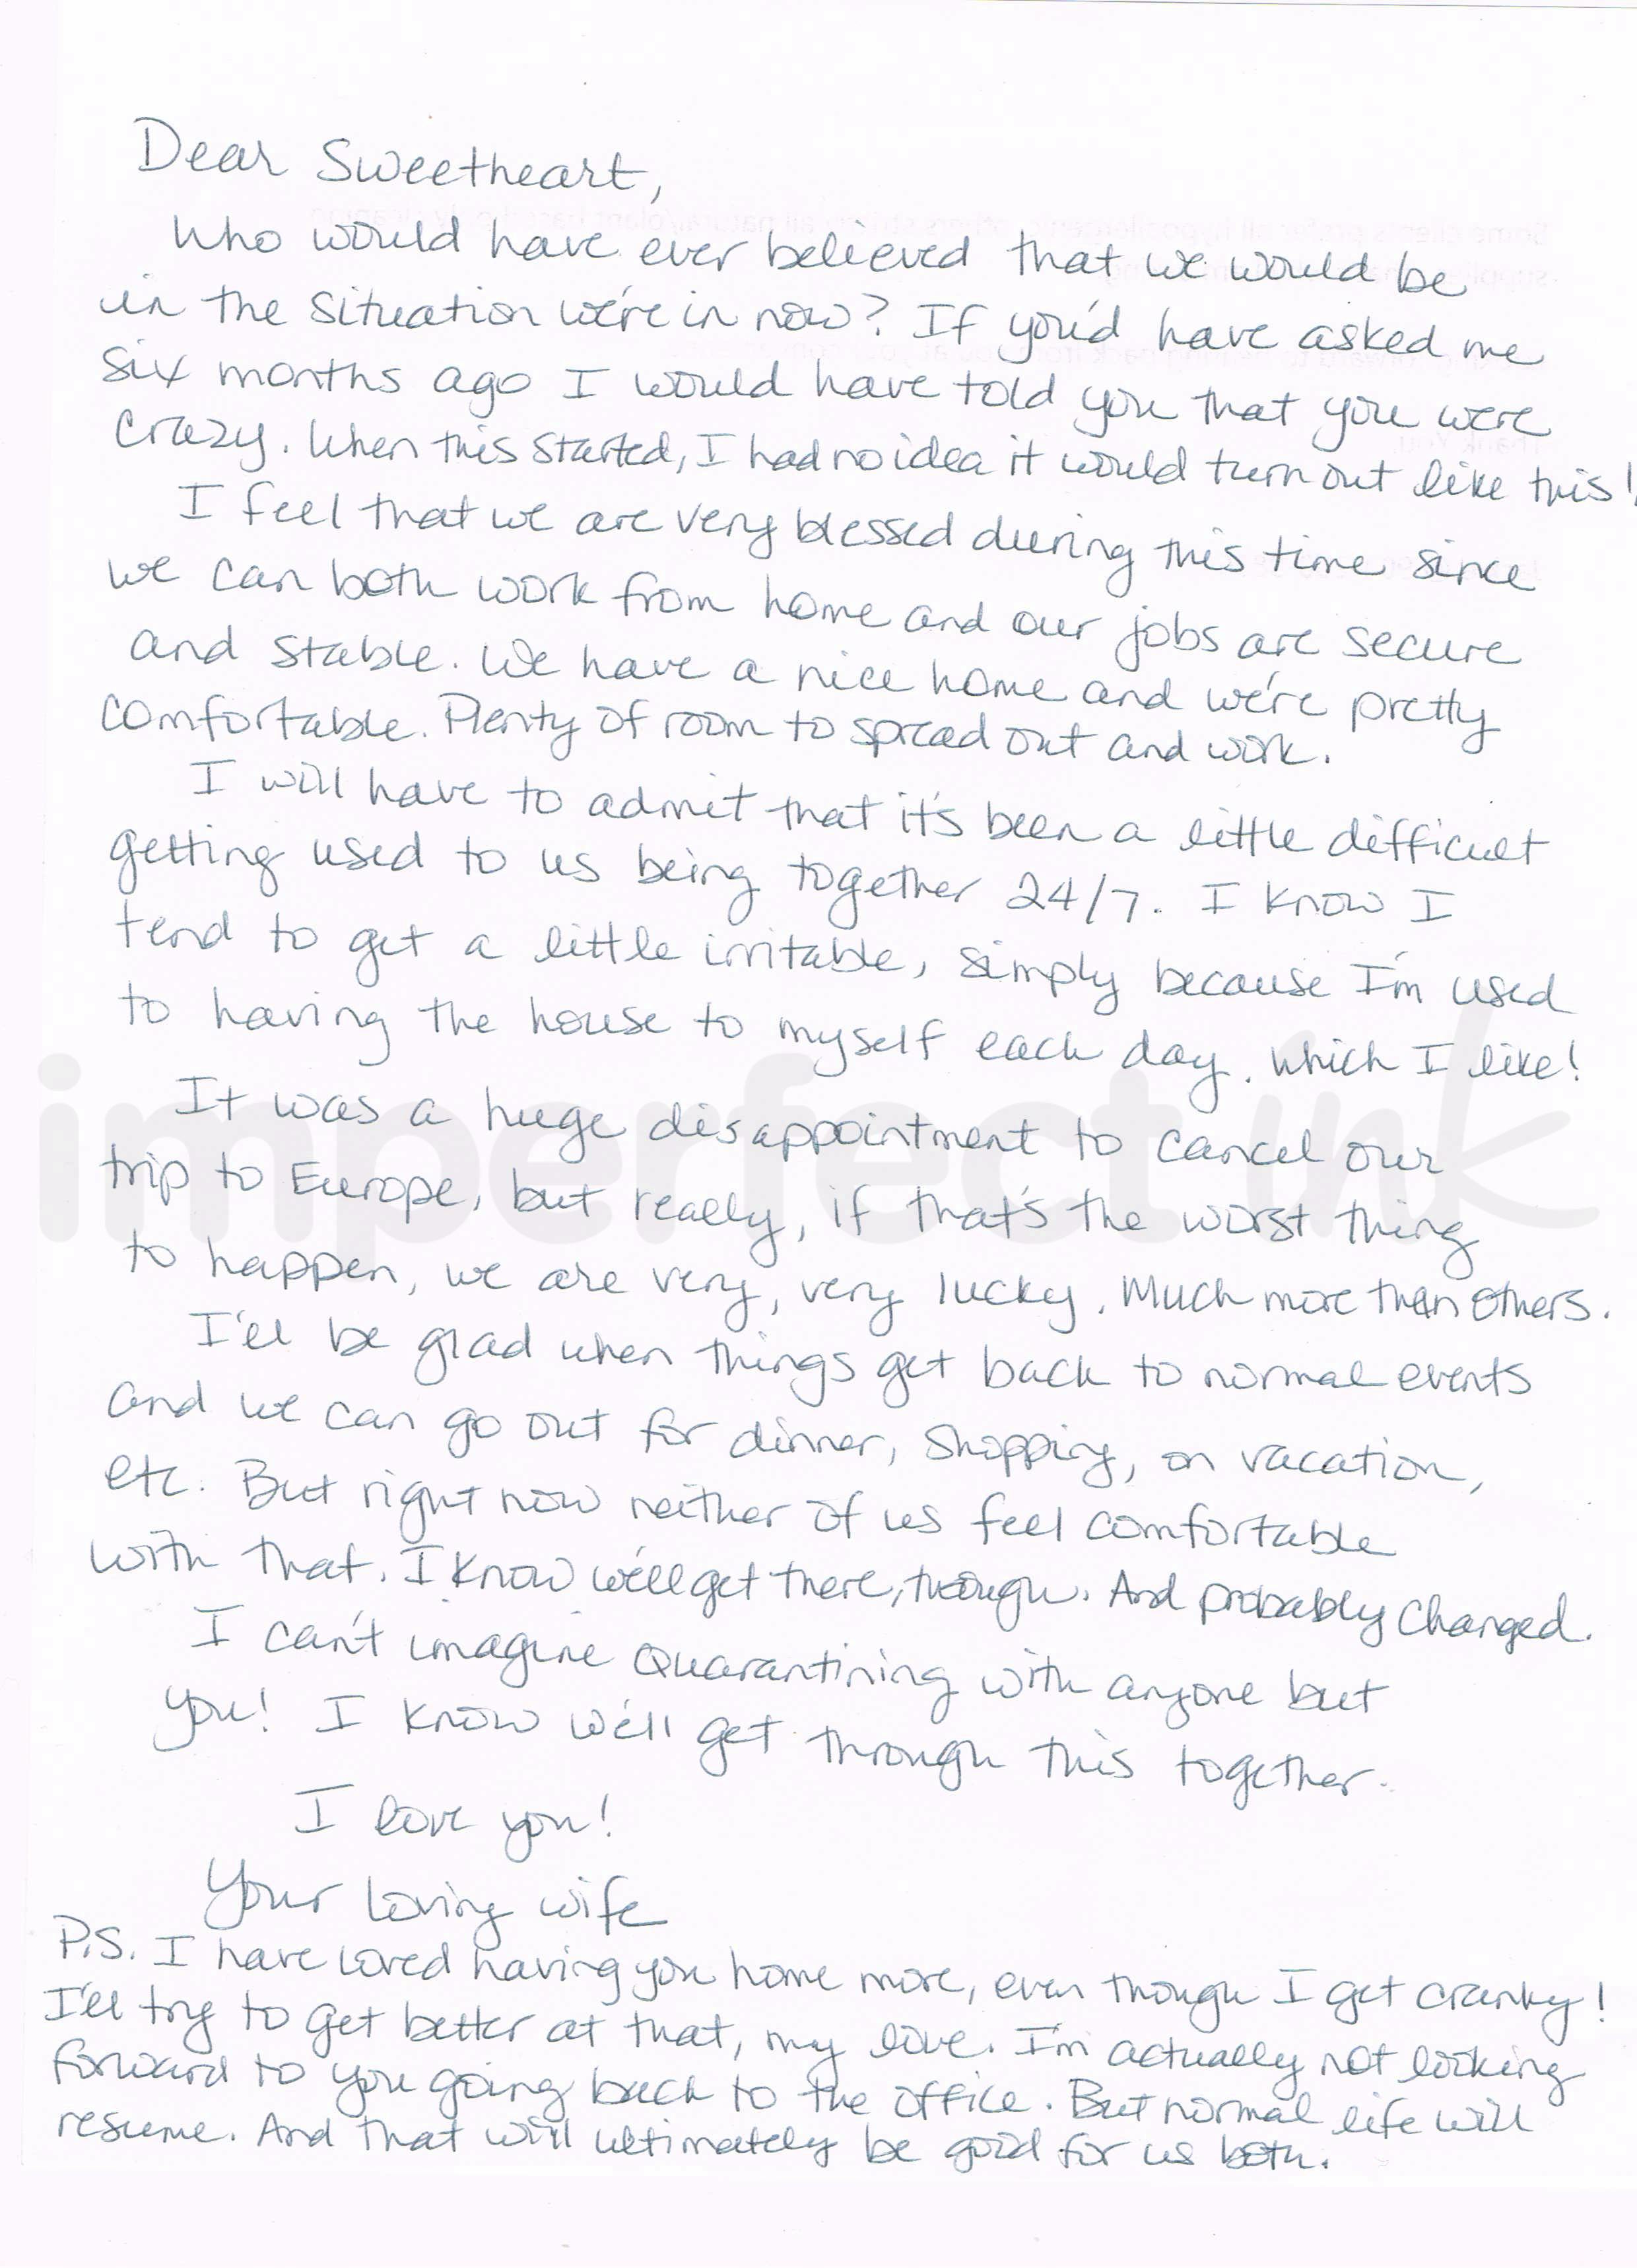 Dear Sweetheart,
Who would have ever believed that we would be
in the situation we're in now? If you'd have asked me
six months ago I would have told you that you were
crazy. When this started, I had no idea it would turn out like this!
I feel that we are very blessed during this time since
we can both work from home and our jobs are secure
and stable. We have a nice home and we're pretty
comfortable. Plenty of room to spread out and work.
I will have to admit that it's been a little difficult
getting used to us being together 24/7. I know I
tend to get a little irritable, simply because I'm used
to having the house to myself each day. Which I like!
It was a huge disappointment to cancel our
trip to Europe, but really, if that's the worst thing
to happen, we are very, very lucky. Much more than others.
imperfect ink
I'll be glad when things get back to normal events
and we can go out for dinner, shopping, on vacation,
etc. But right now neither of us feel comfortable
with that. I know we'll get there, though. And probably changed.
I can't imagine Quarantining with anyone but
you! I know we'll get through this together.
I love you!
Your loving wife
P.S. I have loved having you home more, even though I get cranky!
I'll try to get better at that, my love. I'm actually not looking
forward to you going back to the office. But normal life will
resume. And that will ultimately be good for us both.